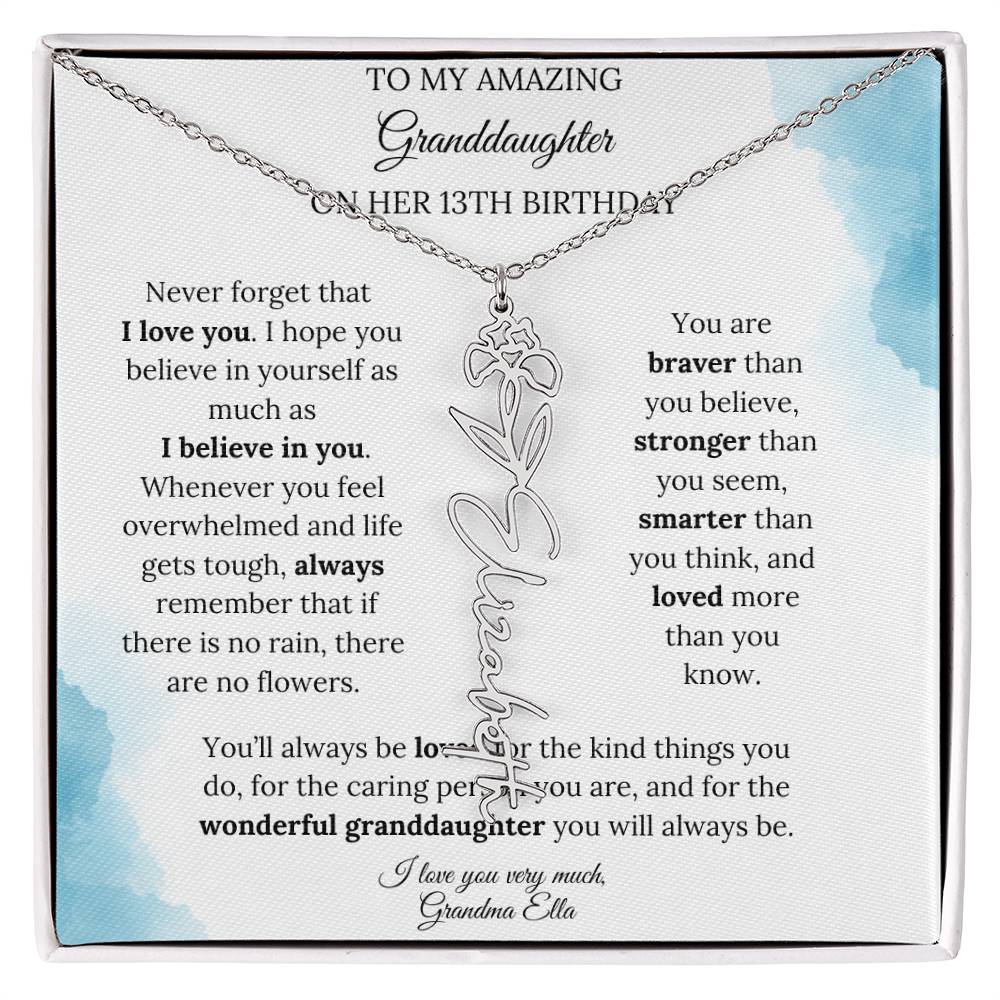 TO MY AMAZING
Granddaughter
ON HER 13TH BIRTHDAY
Never forget that
I love you. I hope you
believe in yourself as
much as
I believe in you.
Whenever you feel
overwhelmed and life
gets tough, always
remember that if
there is no rain, there
are no flowers.
You are
braver than
you believe,
stronger than
you seem,
smarter than
you think, and
loved more
than you
know.
Elizabeth
You’ll always be loved for the kind things you
do, for the caring person you are, and for the
wonderful granddaughter you will always be.
I love you very much,
Grandma Ella